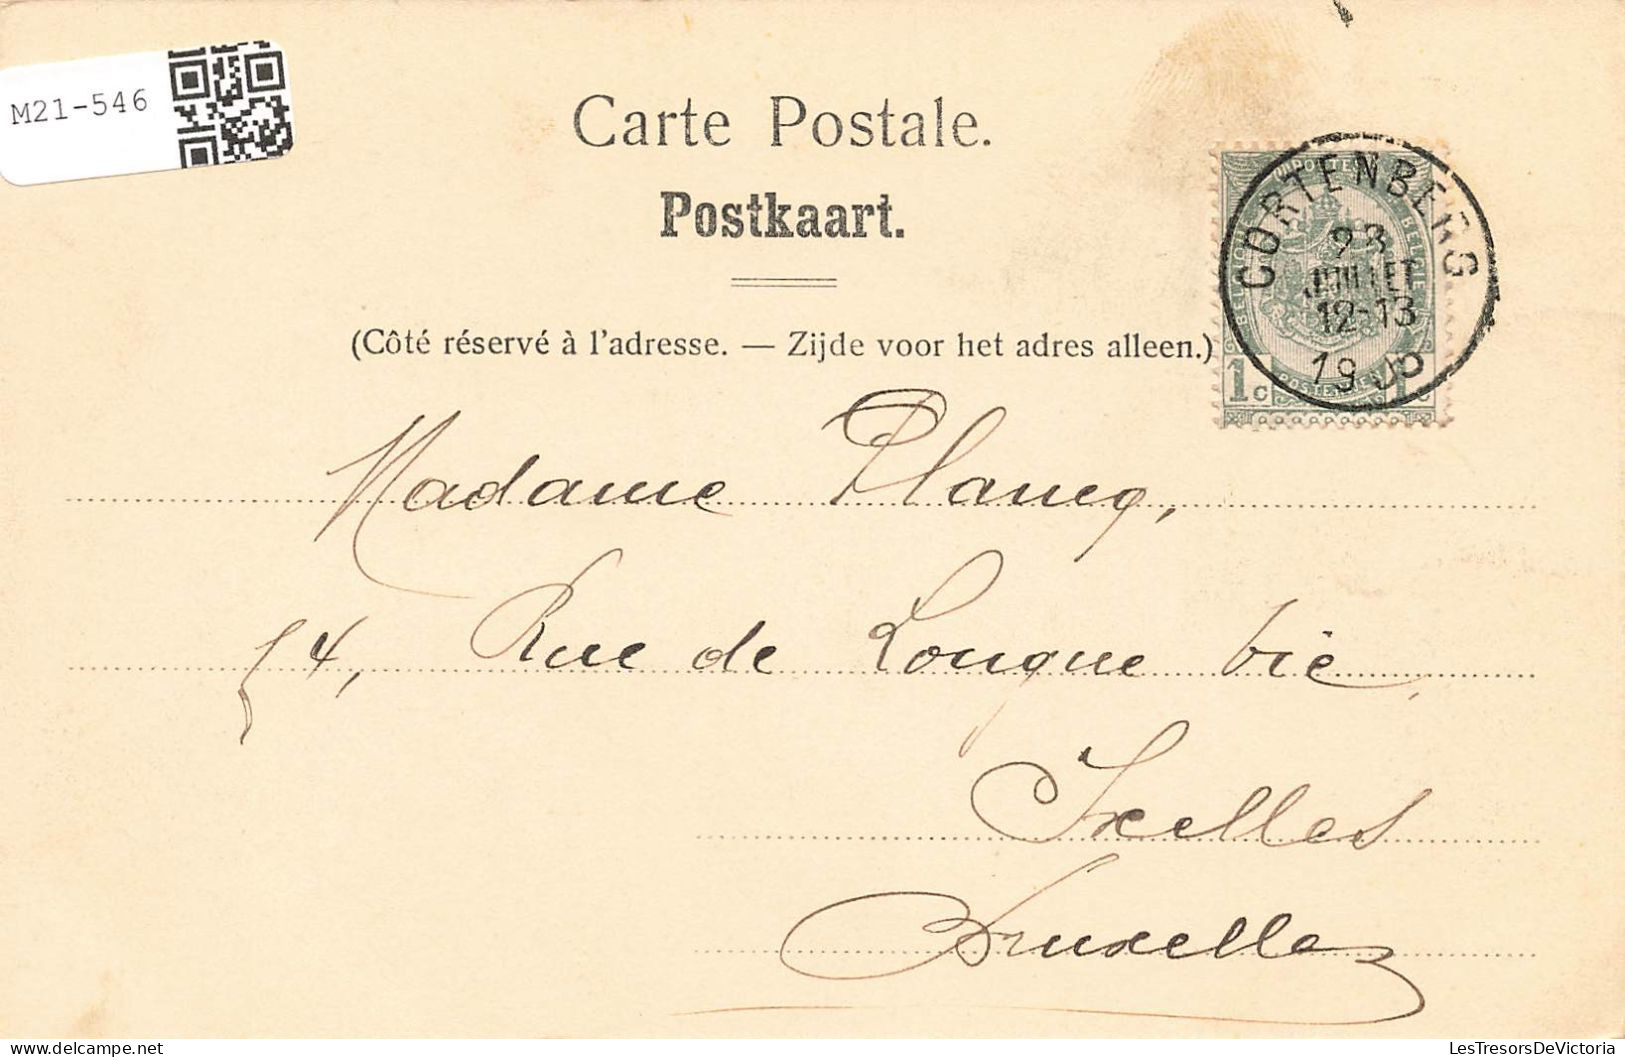 M21-546
Carte Postale.
Postkaart.
(Côté réservé à l'adresse. — Zijde voor het adres alleen.)
CORTENBERG
23
JUILLET
12-13
19
POSTES
BELGIE
1c 1c
Madame Plancq,
54, Rue de Longue vie,
Ixelles
Bruxelles
LesTresorsDeVictoria